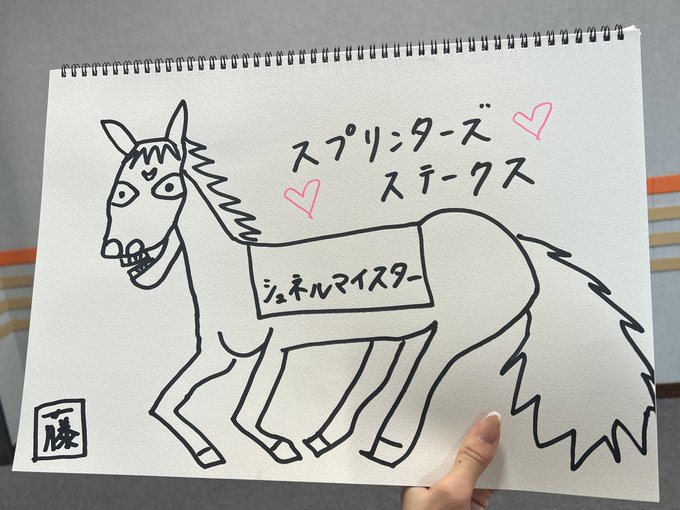 スプリンターズ
ステークス
シュネルマイスター
藤